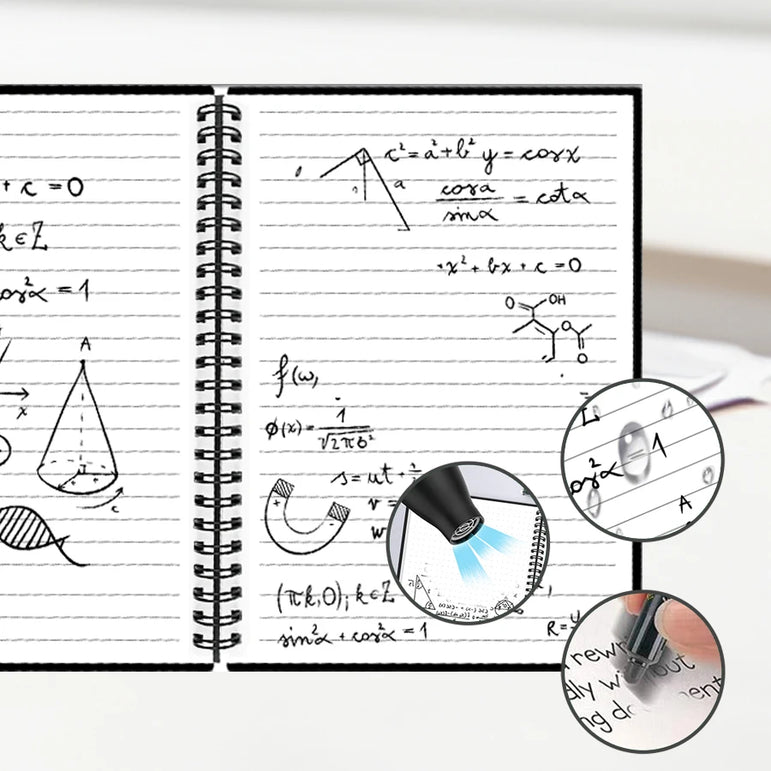 + c = 0
k ∈ Z
cos²α = 1
A
x
r
c
c² = a² + b² y = cosx
a
cosα
sinα
= cotα
+x² + bx + c = 0
O
OH
O
O
f(ω,
ϕ(x) = 1
√2πb²
s = ut +
v =
w
+
-
(πk,0); k ∈ Z
sin²α + cos²α = 1
R =
Z
os²α = 1
A
rewri
out
lly wi
ent
ng do